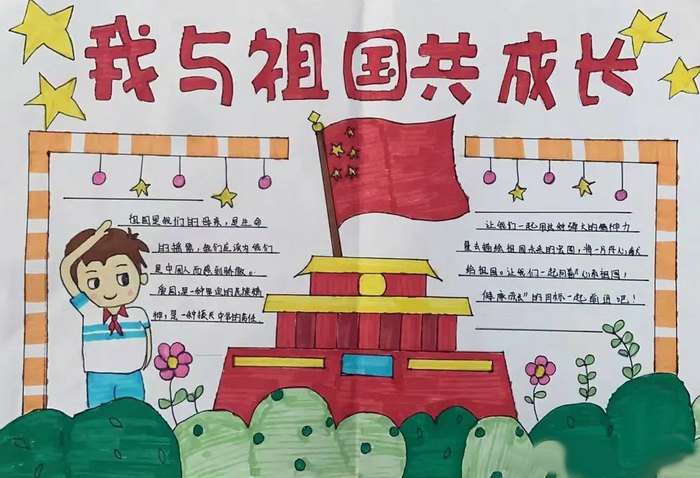 我与祖国共成长
祖国是我们的母亲,是生命
的摇篮,我们应该为我们
是中国人而感到骄傲。
爱国,是一种坚定的民族精
神,是一种振兴中华的责任
让我们一起用这种强大的精神力
量去描绘祖国未来的宏图,将一片丹心献
给祖国。让我们一起向着"心系祖国!
健康成长"的目标一起前进吧!